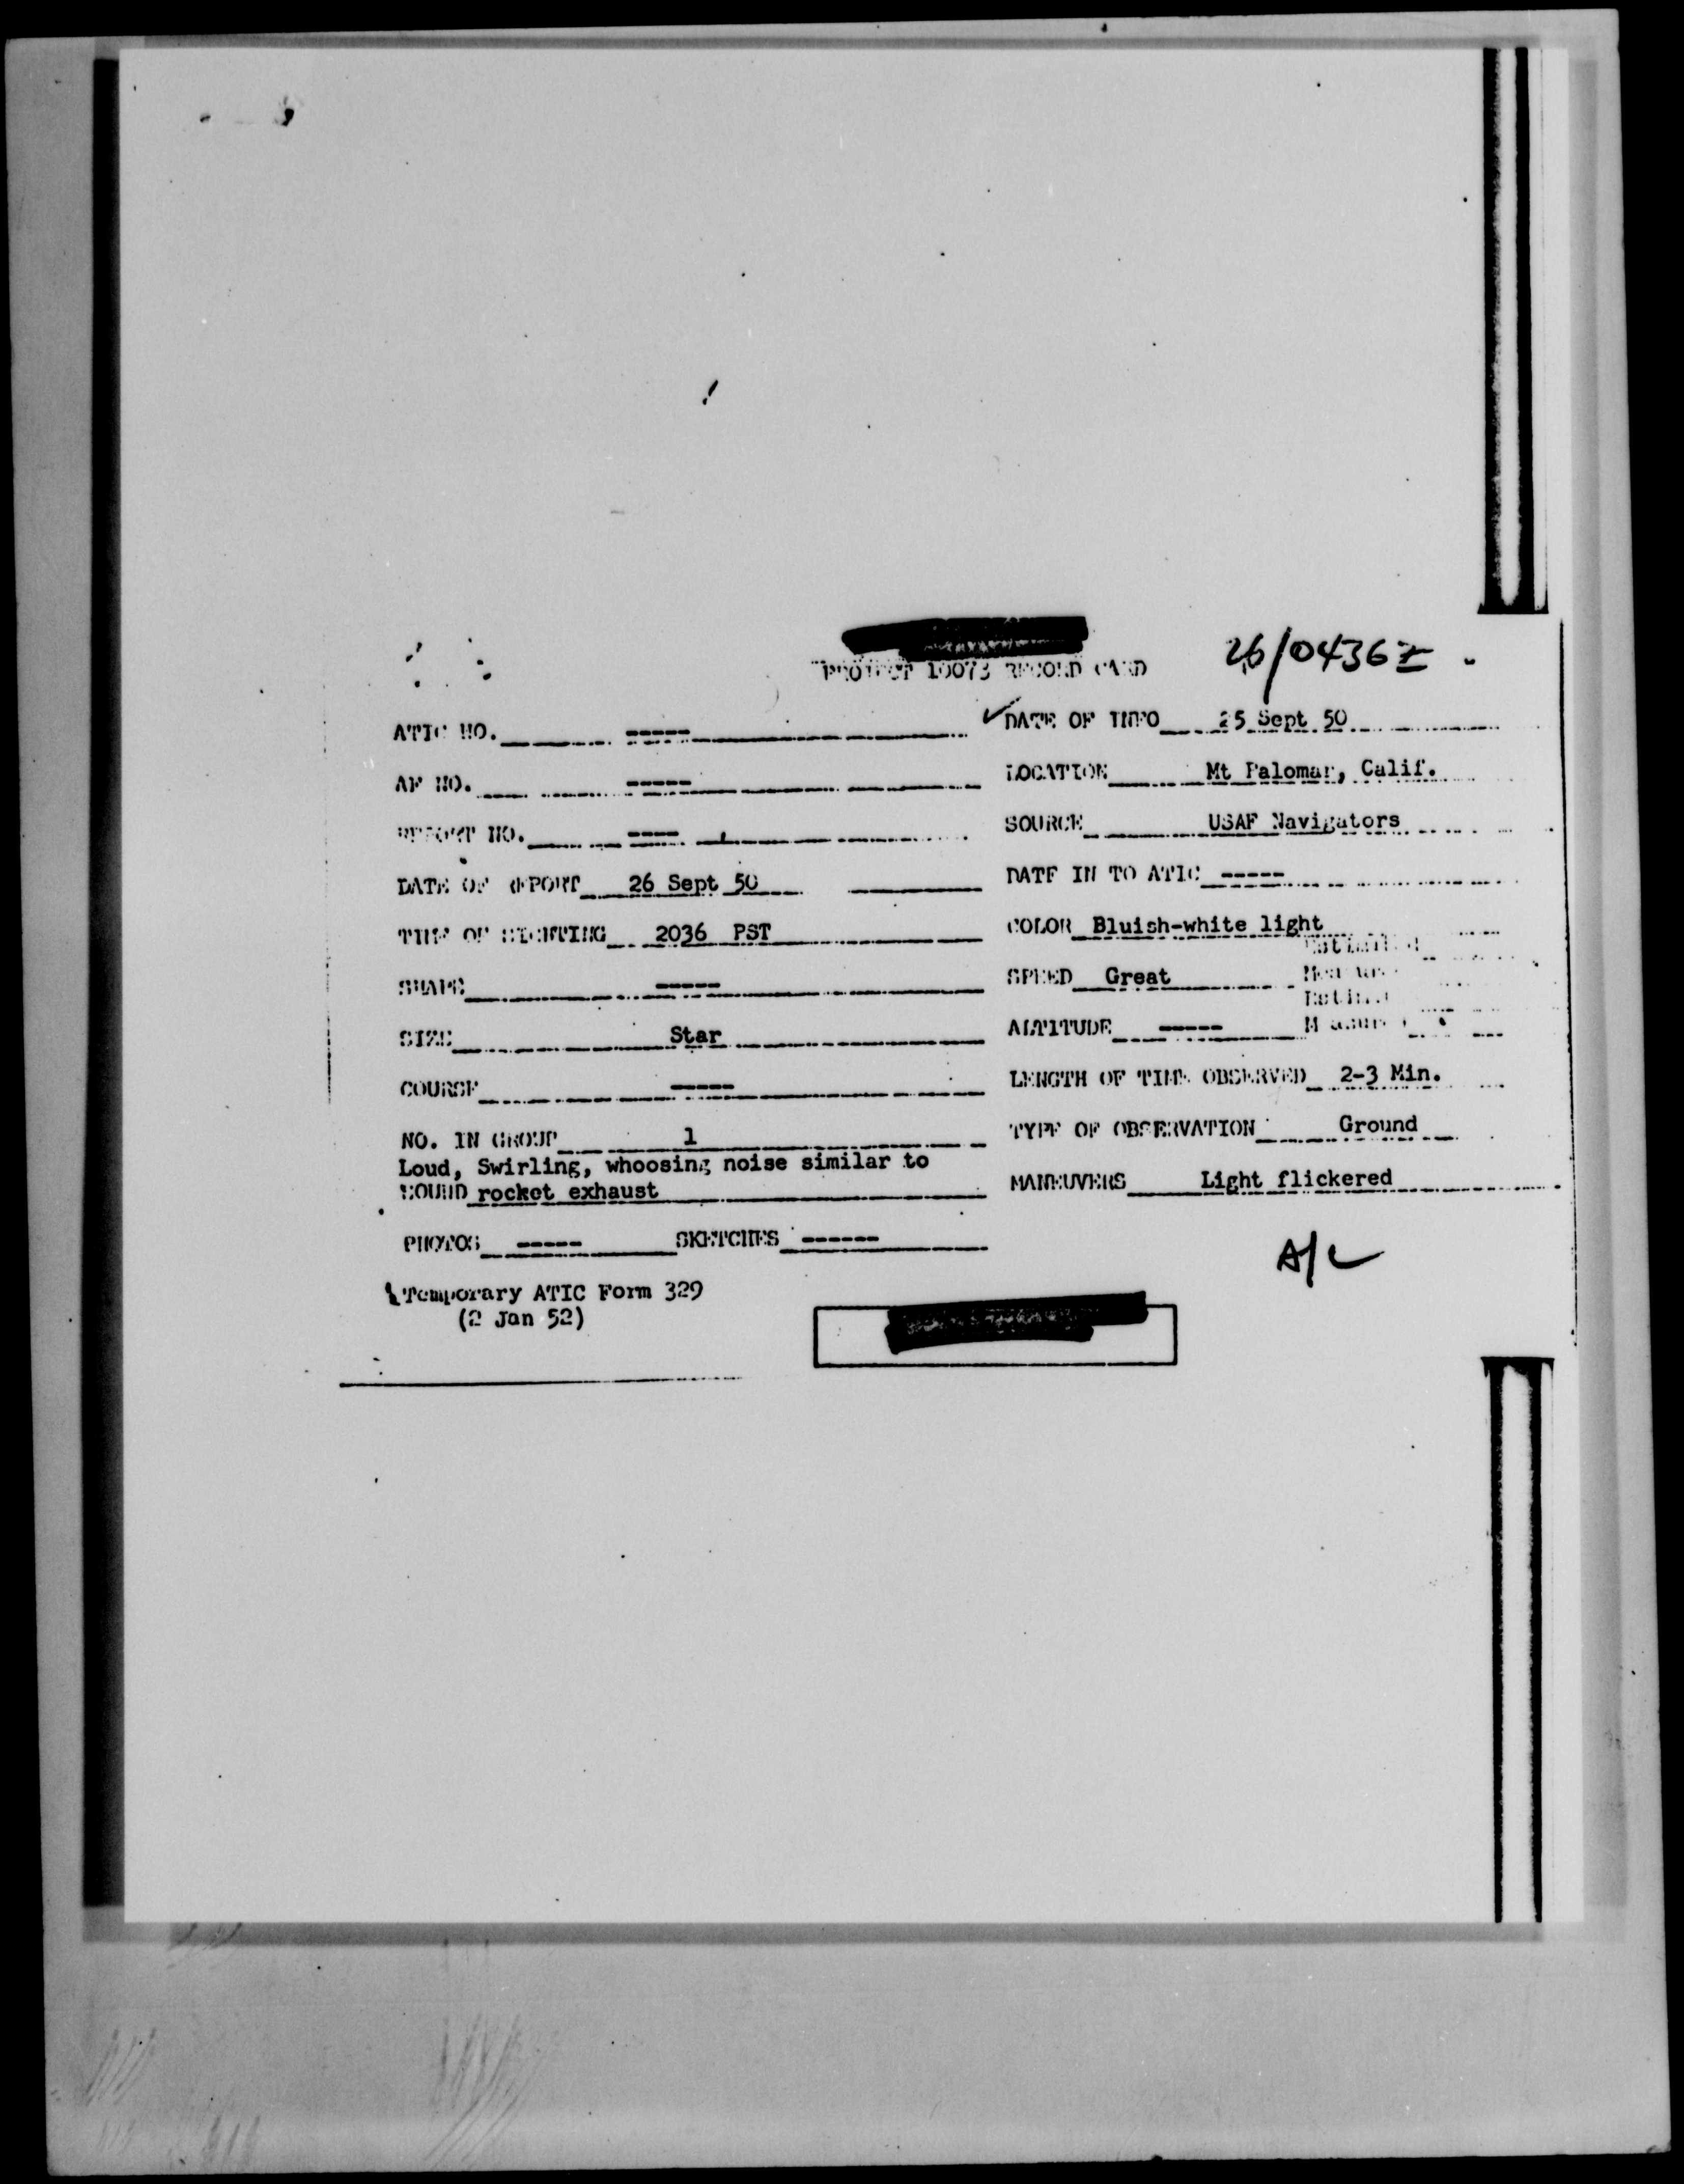 PROJECT 10073 RECORD CARD
26/0436Z
ATIC NO. -----
DATE OF INFO 25 Sept 50
AF NO. -----
LOCATION Mt Palomar, Calif.
REPORT NO. ----
SOURCE USAF Navigators
DATE OF REPORT 26 Sept 50
DATE IN TO ATIC -----
TIME OF SIGHTING 2036 PST
COLOR Bluish-white light
SHAPE -----
SPEED Great
SIZE Star
ALTITUDE -----
COURSE -----
LENGTH OF TIME OBSERVED 2-3 Min.
NO. IN GROUP 1
TYPE OF OBSERVATION Ground
Loud, Swirling, whoosing noise similar to
SOUND rocket exhaust
MANEUVERS Light flickered
PHOTOS ----- SKETCHES ------
A/C
Temporary ATIC Form 329
(2 Jan 52)